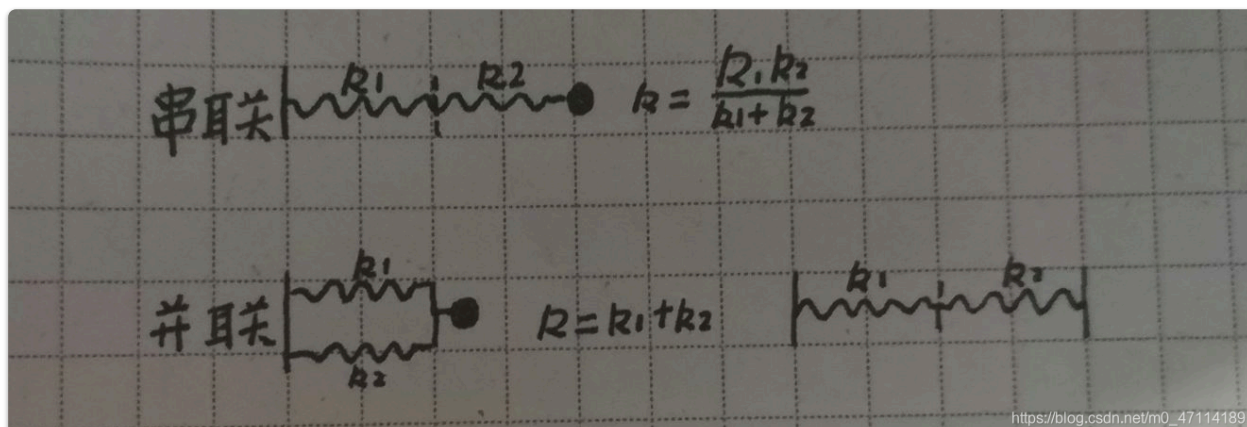 串联 k1 k2 k = k1k2/k1+k2
并联 k1 k2 k=k1+k2 k1 k2
https://blog.csdn.net/m0_47114189